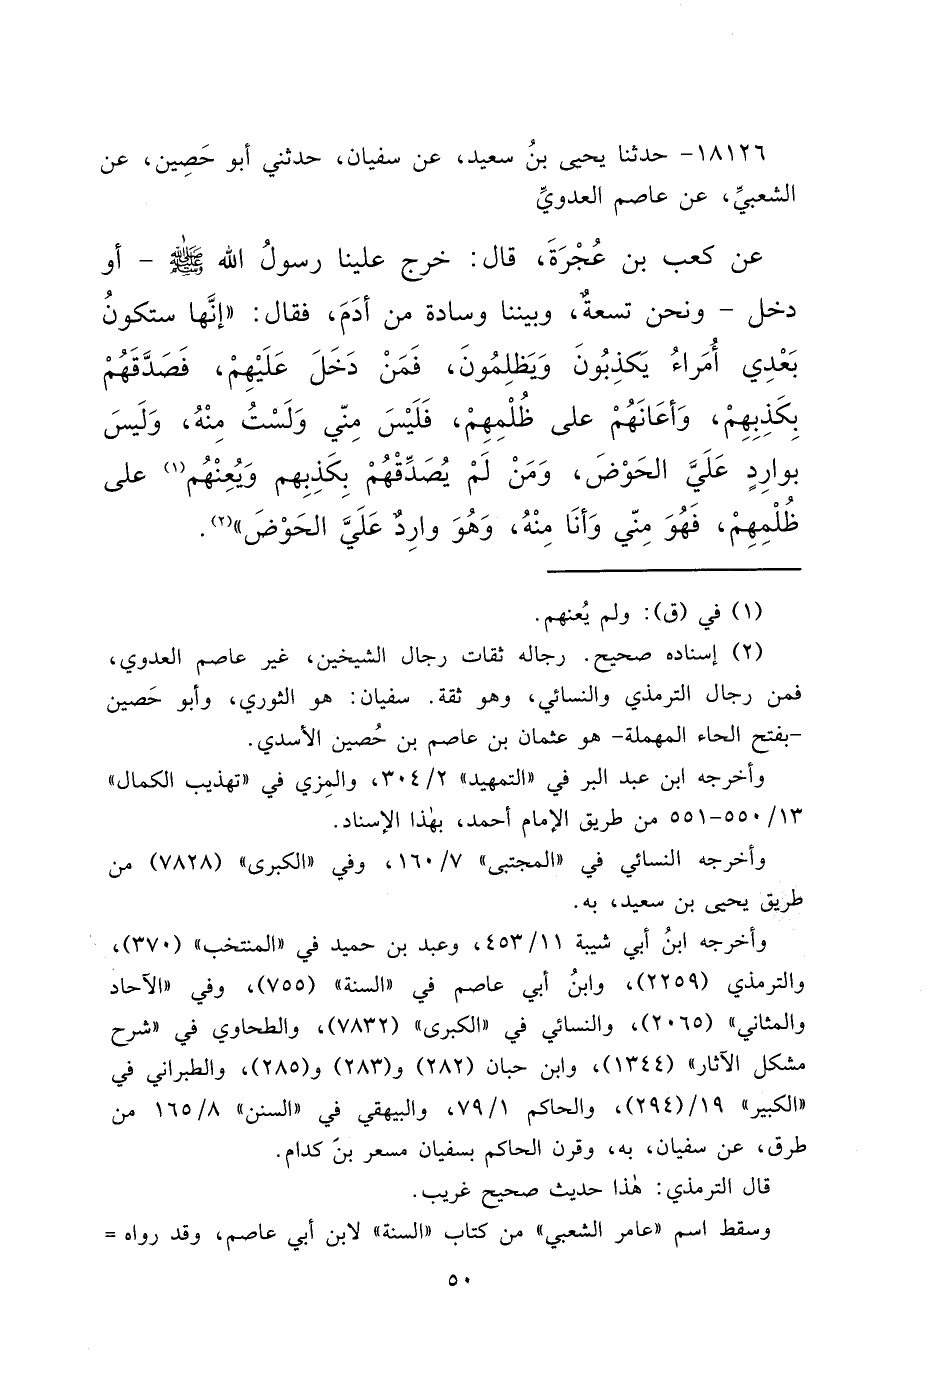 ١٨١٢٦- حدثنا يحيى بنُ سعيد، عن سفيان، حدثني أبو حَصِين، عن
الشعبيِّ، عن عاصم العدويِّ
عن كعب بن عُجْرَةَ، قال: خرج علينا رسولُ الله ﷺ - أو
دخل - ونحن تسعةٌ، وبيننا وسادة من أدَمَ، فقال: «إنَّها ستكونُ
بَعْدِي أُمَراءُ يَكذِبُونَ وَيَظلِمُونَ، فَمَنْ دَخَلَ عَلَيْهِمْ، فَصَدَّقَهُمْ
بِكَذِبِهِمْ، وَأعَانَهُمْ على ظُلْمِهِمْ، فَلَيْسَ مِنّي وَلَسْتُ مِنْهُ، وَلَيسَ
بوارِدٍ عَلَيَّ الحَوْضَ، وَمَنْ لَمْ يُصَدِّقْهُمْ بِكَذِبِهم وَيُعِنْهُم(١) على
ظُلْمِهِمْ، فَهُوَ مِنّي وَأنَا مِنْهُ، وَهُوَ وارِدٌ عَلَيَّ الحَوْضَ»(٢).
(١) في (ق): ولم يُعنهم.
(٢) إسناده صحيح. رجاله ثقات رجال الشيخين، غير عاصم العدوي،
فمن رجال الترمذي والنسائي، وهو ثقة. سفيان: هو الثوري، وأبو حَصين
-بفتح الحاء المهملة- هو عثمان بن عاصم بن حُصين الأسدي.
وأخرجه ابن عبد البر في «التمهيد» ٣٠٤/٢، والمِزي في «تهذيب الكمال»
٥٥٠/١٣-٥٥١ من طريق الإمام أحمد، بهٰذا الإسناد.
وأخرجه النسائي في «المجتبى» ١٦٠/٧، وفي «الكبرى» (٧٨٢٨) من
طريق يحيى بن سعيد، به.
وأخرجه ابنُ أبي شيبة ٤٥٣/١١، وعبد بن حميد في «المنتخب» (٣٧٠)،
والترمذي (٢٢٥٩)، وابنُ أبي عاصم في «السنة» (٧٥٥)، وفي «الآحاد
والمثاني» (٢٠٦٥)، والنسائي في «الكبرى» (٧٨٣٢)، والطحاوي في «شرح
مشكل الآثار» (١٣٤٤)، وابن حبان (٢٨٢) و(٢٨٣) و(٢٨٥)، والطبراني في
«الكبير» ١٩/(٢٩٤)، والحاكم ٧٩/١، والبيهقي في «السنن» ١٦٥/٨ من
طرق، عن سفيان، به، وقرن الحاكم بسفيان مسعر بنَ كدام.
قال الترمذي: هٰذا حديث صحيح غريب.
وسقط اسم «عامر الشعبي» من كتاب «السنة» لابن أبي عاصم، وقد رواه =
٥٠